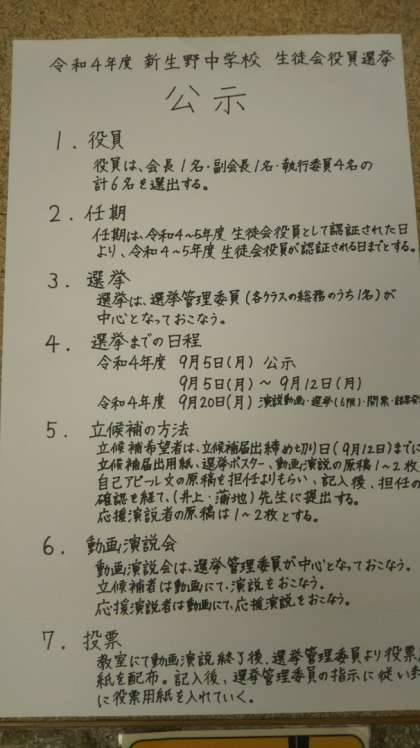 令和4年度 新生野中学校 生徒会役員選挙
公示
1. 役員
役員は、会長1名・副会長1名・執行委員4名の
計6名を選出する。
2. 任期
任期は、令和4~5年度 生徒会役員として認証された日
より、令和4~5年度 生徒会役員が認証される日までとする。
3. 選挙
選挙は、選挙管理委員(各クラスの総務のうち1名)が
中心となっておこなう。
4. 選挙までの日程
令和4年度 9月5日(月) 公示
9月5日(月)~9月12日(月)
令和4年度 9月20日(月) 演説動画・選挙(6限)・開票・
5. 立候補の方法
立候補希望者は、立候補届出締め切り日(9月12日)までに
立候補届出用紙、選挙ポスター、動画演説の原稿1~2枚
自己アピール文の原稿を担任よりもらい、記入後、担任の
確認を経て、(井上・蒲地)先生に提出する。
応援演説者の原稿は1~2枚とする。
6. 動画演説会
動画演説会は、選挙管理委員が中心となっておこなう。
立候補者は動画にて、演説をおこなう。
応援演説者は動画にて、応援演説をおこなう。
7. 投票
教室にて動画演説終了後、選挙管理委員より投票用
紙を配布。記入後、選挙管理委員の指示に従い
に投票用紙を入れていく。